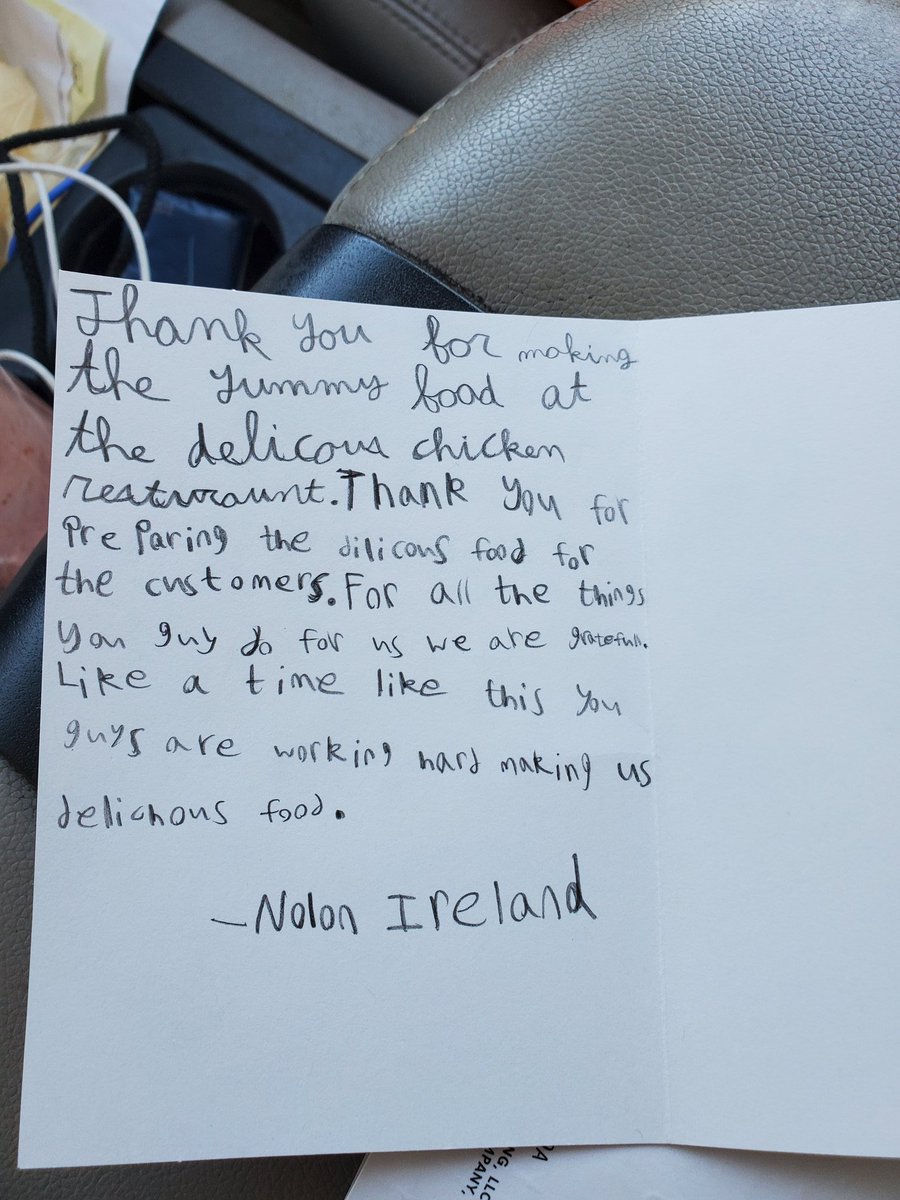 Thank you for making
the yummy food at
the delicous chicken
resturaunt. Thank you for
PreParing the dilicous food for
the customers. For all the things
you guy do for us we are gratefull.
Like a time like this you
guys are working hard making us
delichous food.
-Nolon Ireland
NG, LLC
MPANY,